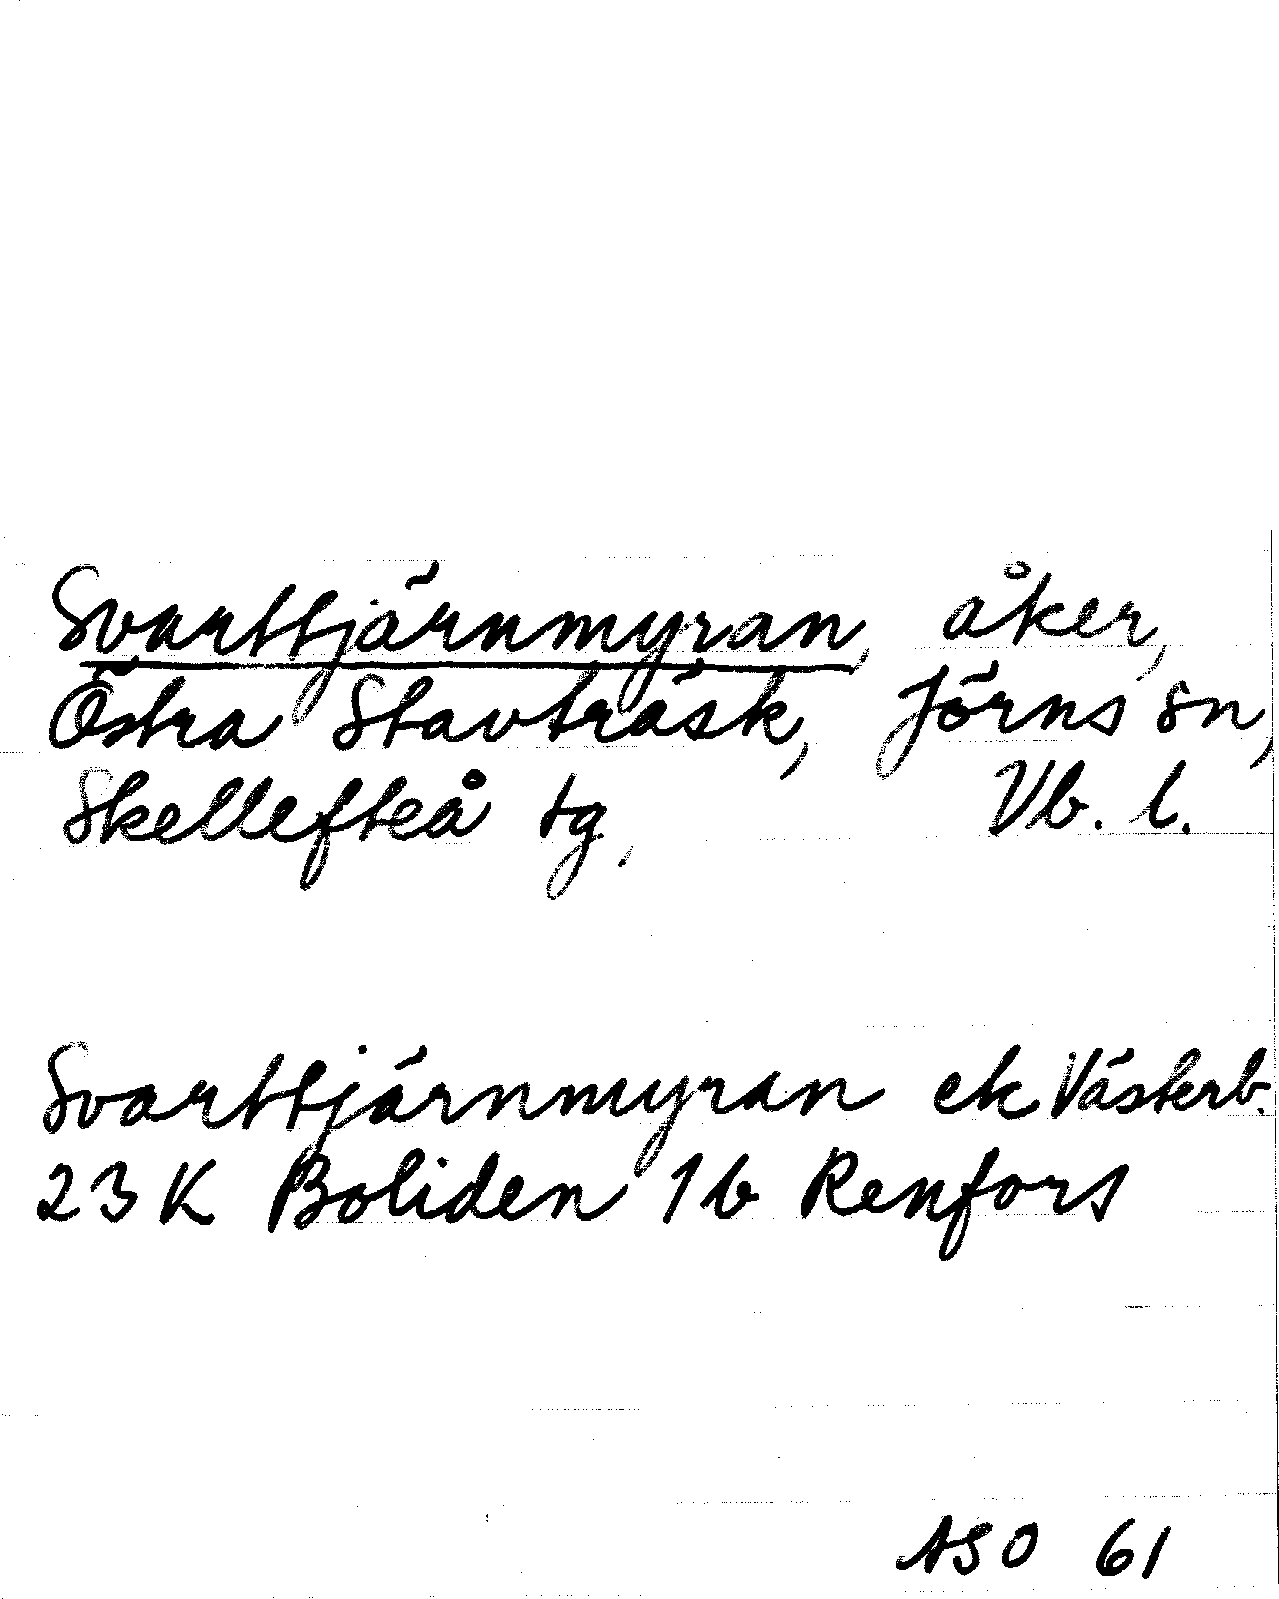 Svarttjärnmyran, åker,
Östra Stavträsk, Jörns sn,
Skellefteå tg, Vb. l.
Svarttjärnmyran ek Västerb.
23 K Boliden 1 b Renfors
ASO 61